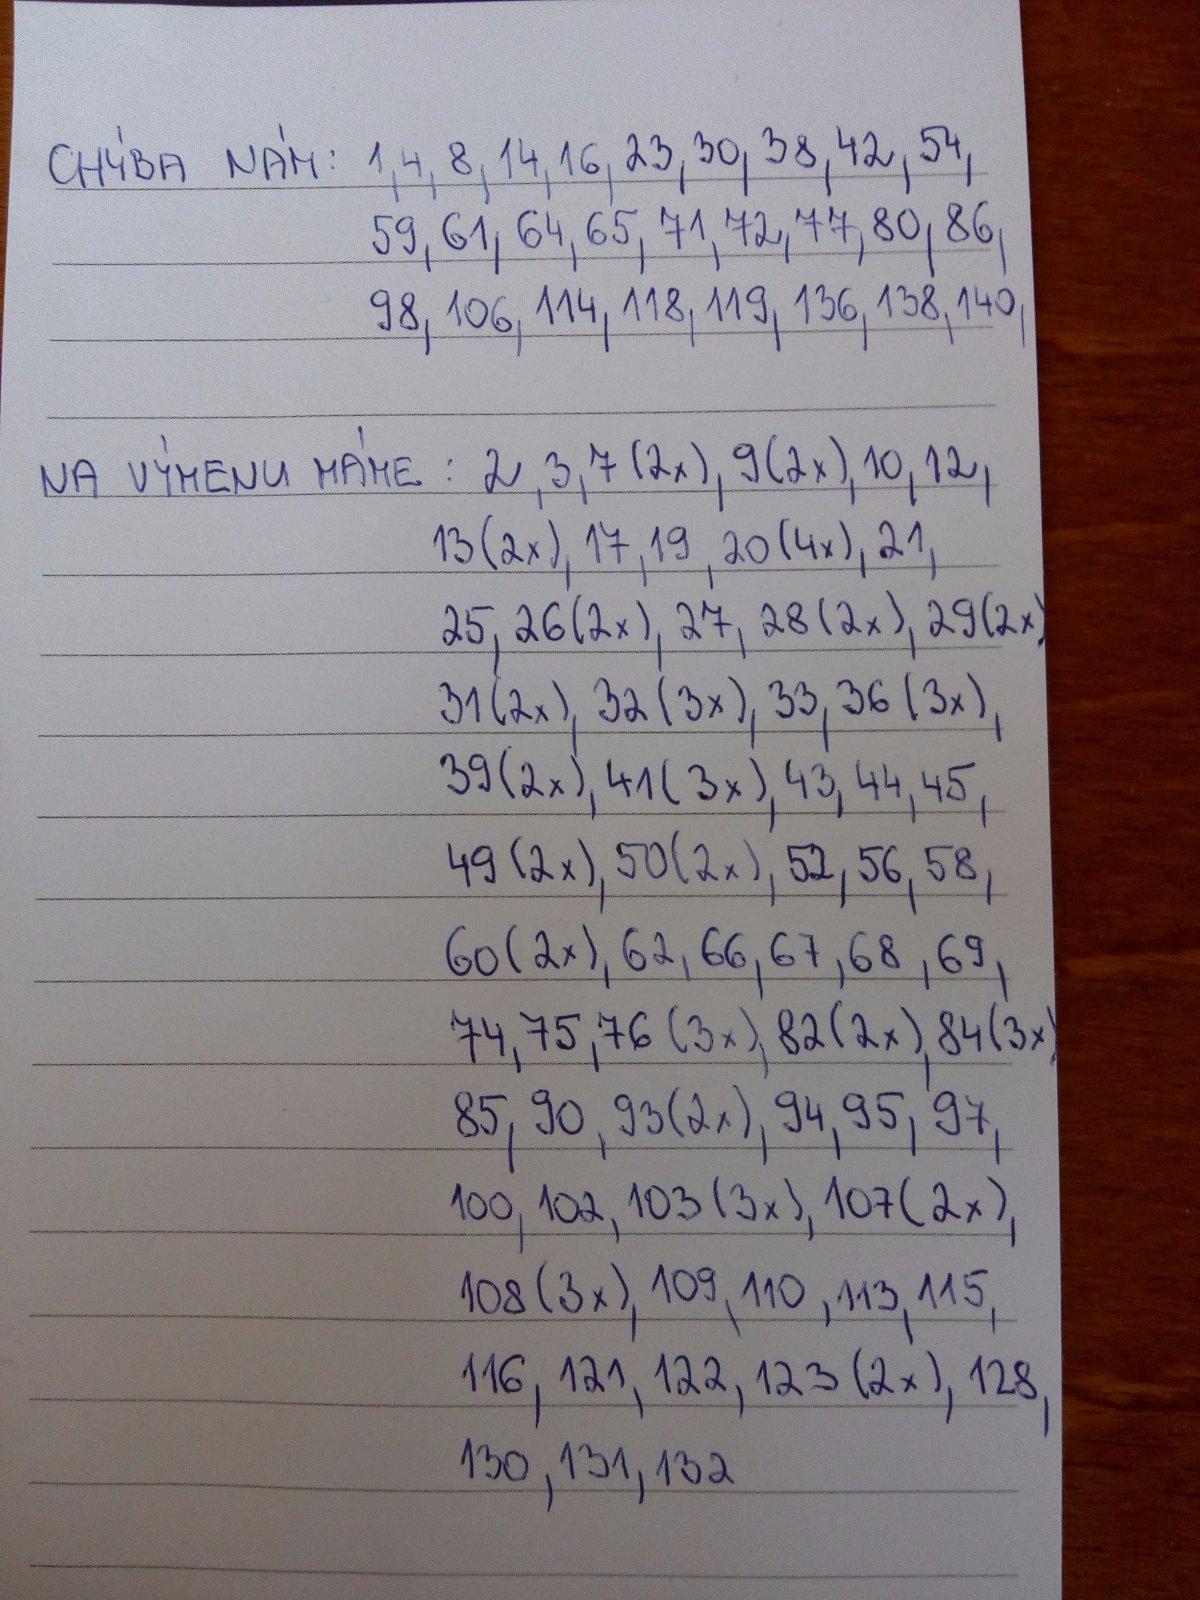 CHÝBA NÁM: 1, 4, 8, 14, 16, 23, 30, 38, 42, 54,
59, 61, 64, 65, 71, 72, 77, 80, 86,
98, 106, 114, 118, 119, 136, 138, 140,
NA VÝMENU MÁME: 2, 3, 7(2x), 9(2x), 10, 12,
13(2x), 17, 19, 20(4x), 21,
25, 26(2x), 27, 28(2x), 29(2x)
31(2x), 32(3x), 33, 36(3x),
39(2x), 41(3x), 43, 44, 45,
49(2x), 50(2x), 52, 56, 58,
60(2x), 62, 66, 67, 68, 69,
74, 75, 76(3x), 82(2x), 84(3x)
85, 90, 93(2x), 94, 95, 97,
100, 102, 103(3x), 107(2x),
108(3x), 109, 110, 113, 115,
116, 121, 122, 123(2x), 128,
130, 131, 132